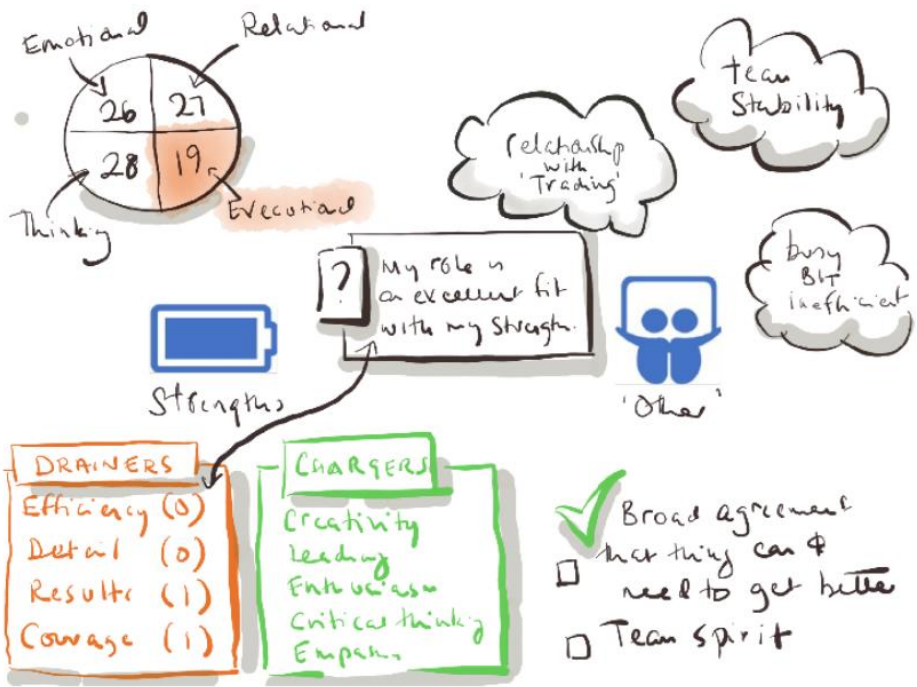 Emotional
Relational
26
27
28
19
Thinking
Executional
relationship
with
'Trading'
team
Stability
busy
BUT
inefficient
?
My role is
an excellent fit
with my strengths.
Strengths
'Other'
DRAINERS
Efficiency (0)
Detail (0)
Results (1)
Courage (1)
CHARGERS
Creativity
Leading
Enthusiasm
Critical thinking
Empathy
Broad agreement
that thing can &
need to get better
Team spirit